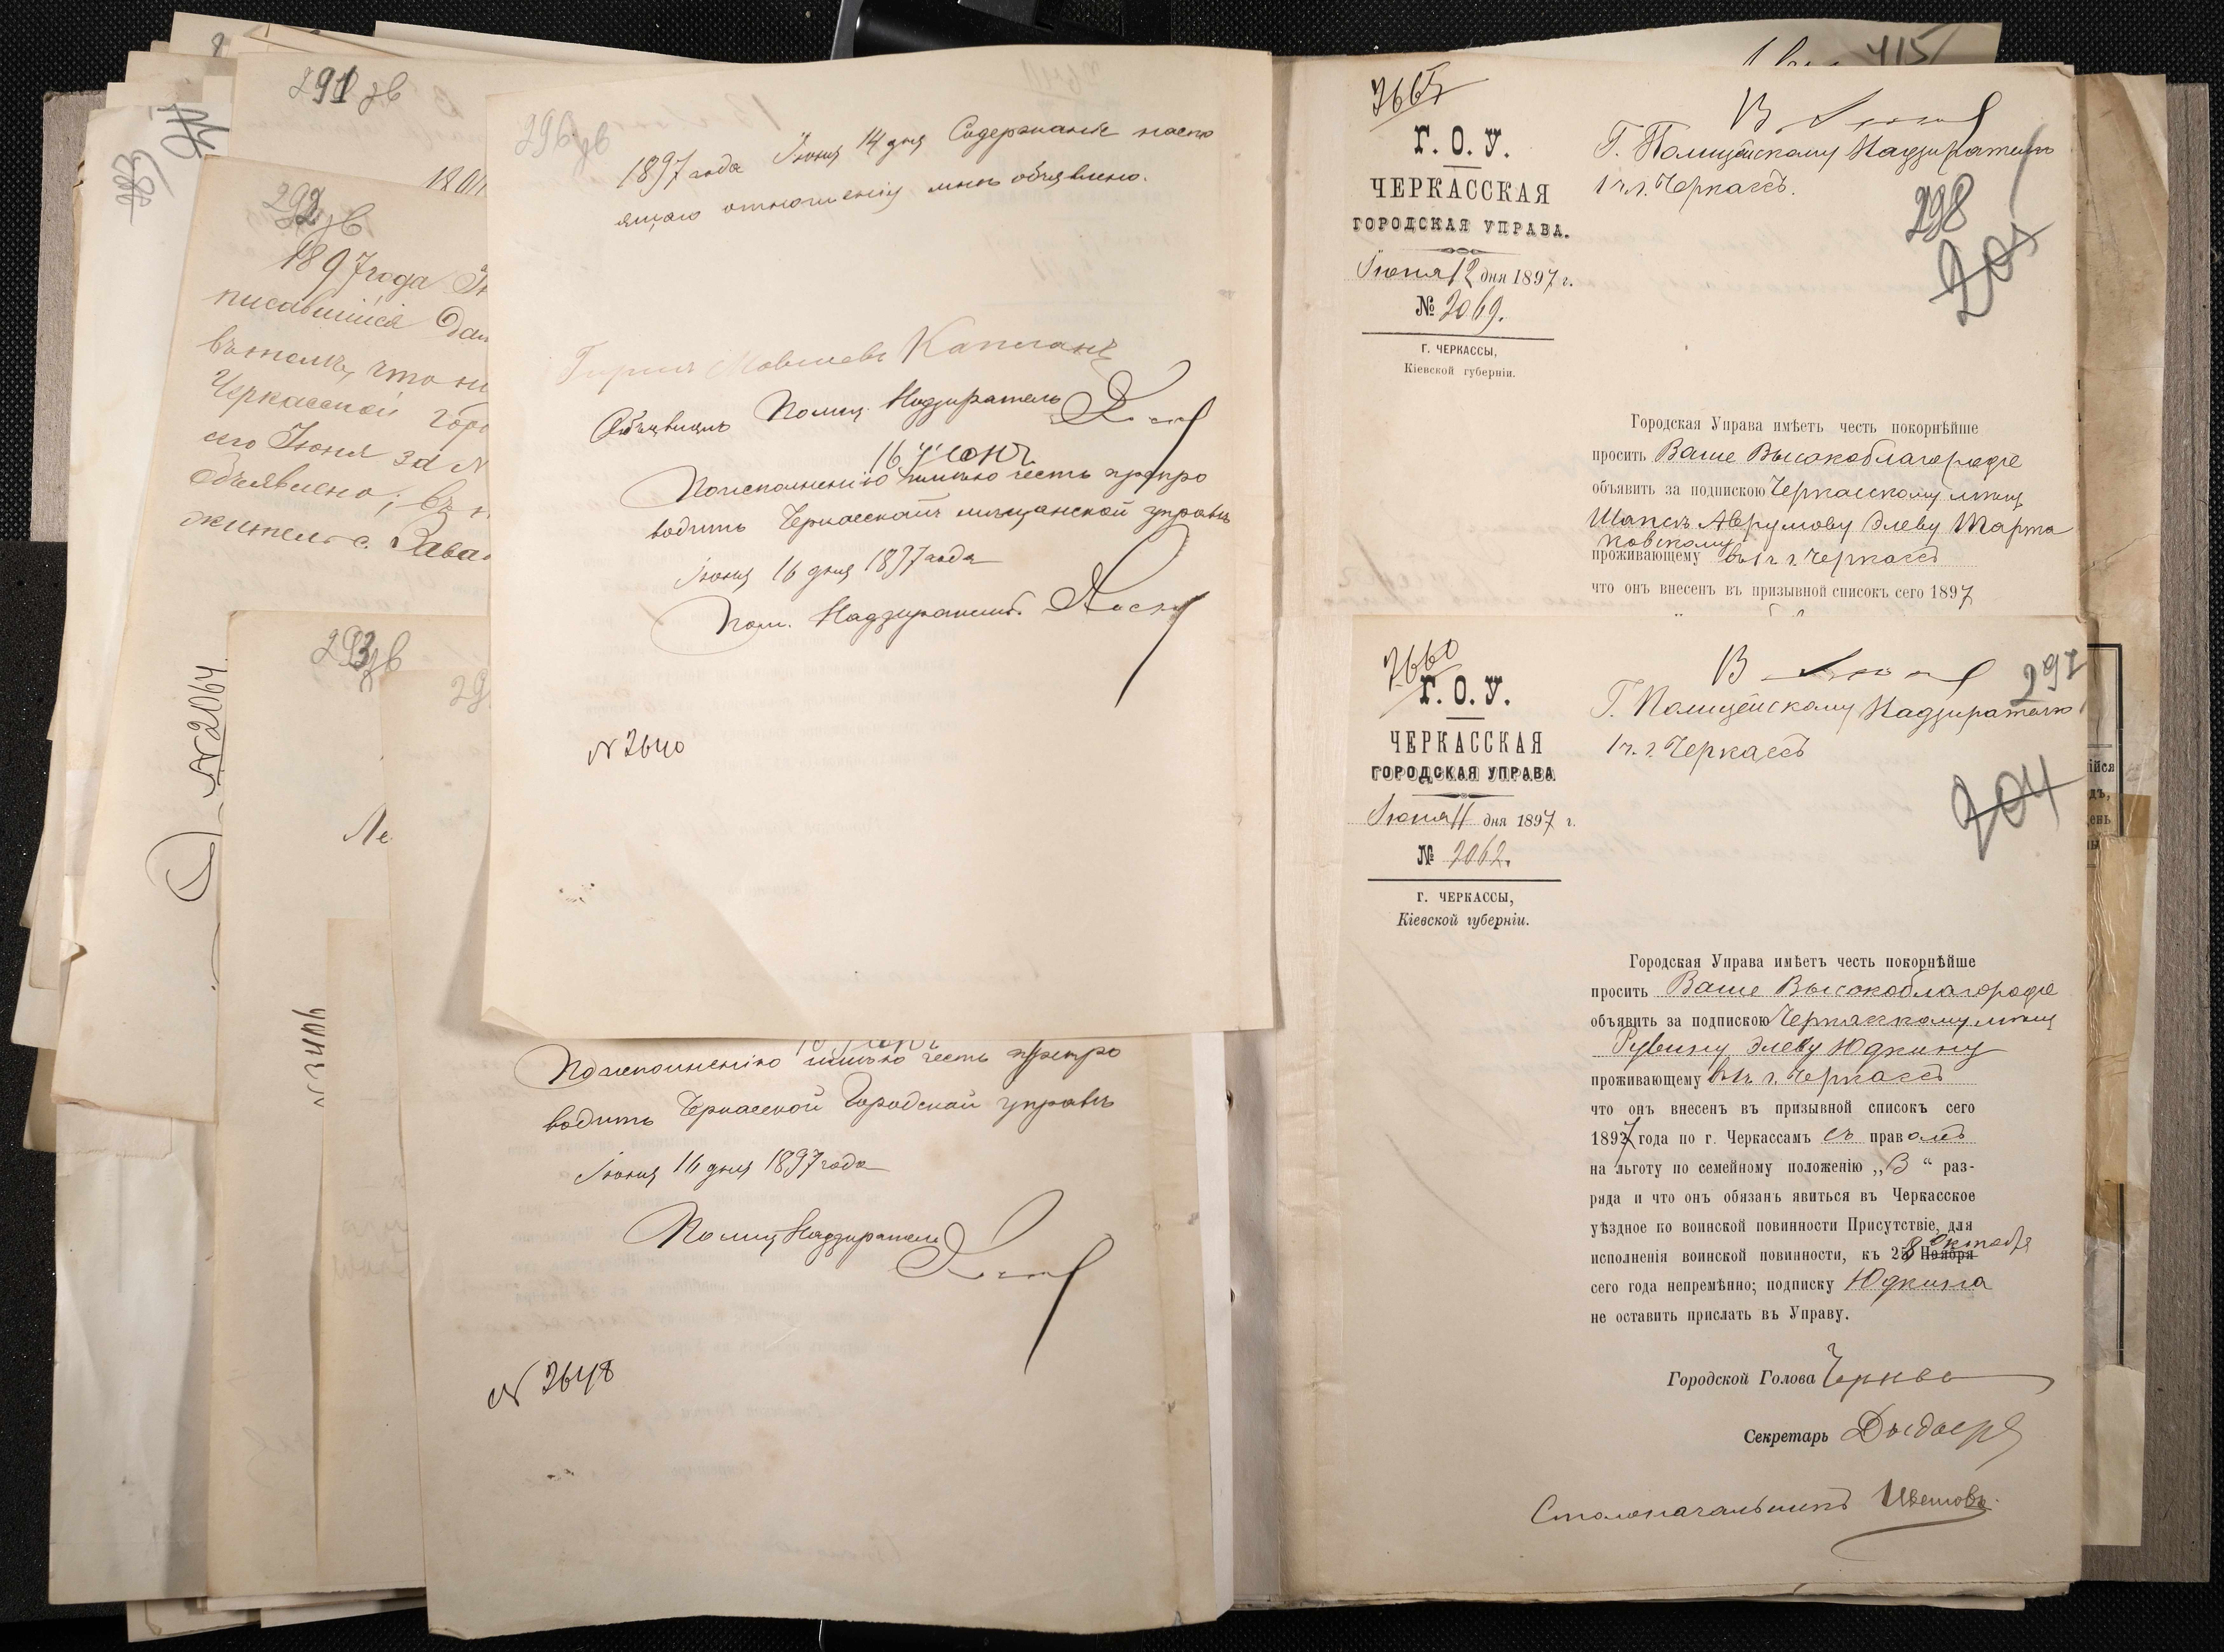 283
№2064.
291 зв
1897
292 зв
1897 года
писавшійся
въ томъ, что
Черкасской
сего Іюня за №
объявлено; въ
жительс.
293 зв
Ле
№ 2406
296 зв
1897 года Іюня 14 дня Содержаніе насто
ящаго отношенія мнѣ объявлено.
Мовшевъ Капланъ
Объявилъ Полиц. Надзиратель
16 Іюня
По исполненію имѣю честь препро
водить Черкасской мѣщанской управѣ
Іюня 16 дня 1897 года
Пол. Надзиратель
№ 2640
По исполненію имѣю честь препро
водить Черкасской Городской управѣ
Іюня 16 дня 1897 года
Полиц Надзиратель
№ 2648
415
2665
Г. О. У.
ЧЕРКАССКАЯ
ГОРОДСКАЯ УПРАВА.
Іюня 12 дня 1897 г.
№ 2069.
Г. ЧЕРКАССЫ,
Кіевской губерніи.
Г. Полицейскому Надзирателю
1 ч. г. Черкассъ.
298
205
Городская Управа имѣетъ честь покорнѣйше
просить Ваше Высокоблагородіе
объявить за подпискою Черкасскому мѣщ
Аврумову Элеву Марта
ковскому
проживающему въ 1 ч г. Черкассъ
что онъ внесенъ въ призывной списокъ сего 1897
2660
Г. О. У.
ЧЕРКАССКАЯ
ГОРОДСКАЯ УПРАВА
Іюня 11 дня 1897 г.
№ 2062.
Г. ЧЕРКАССЫ,
Кіевской губерніи.
297
Г. Полицейскому Надзирателю
1 ч. г. Черкассъ
204
Городская Управа имѣетъ честь покорнѣйше
просить Ваше Высокоблагородіе
объявить за подпискою Черкасскому мѣщ
Рувину Элеву Юдкину
проживающему въ 1 ч. г. Черкассъ
что онъ внесенъ въ призывной списокъ сего
1897 года по г. Черкассамъ съ правомъ
на льготу по семейному положенію „3“ раз-
ряда и что онъ обязанъ явиться въ Черкасское
уѣздное по воинской повинности Присутствіе, для
исполненія воинской повинности, къ 28 Ноября Октября
сего года непремѣнно; подписку Юдкина
не оставить прислать въ Управу.
Городской Голова
Секретарь
Столоначальникъ
ійся
дъ,
ень